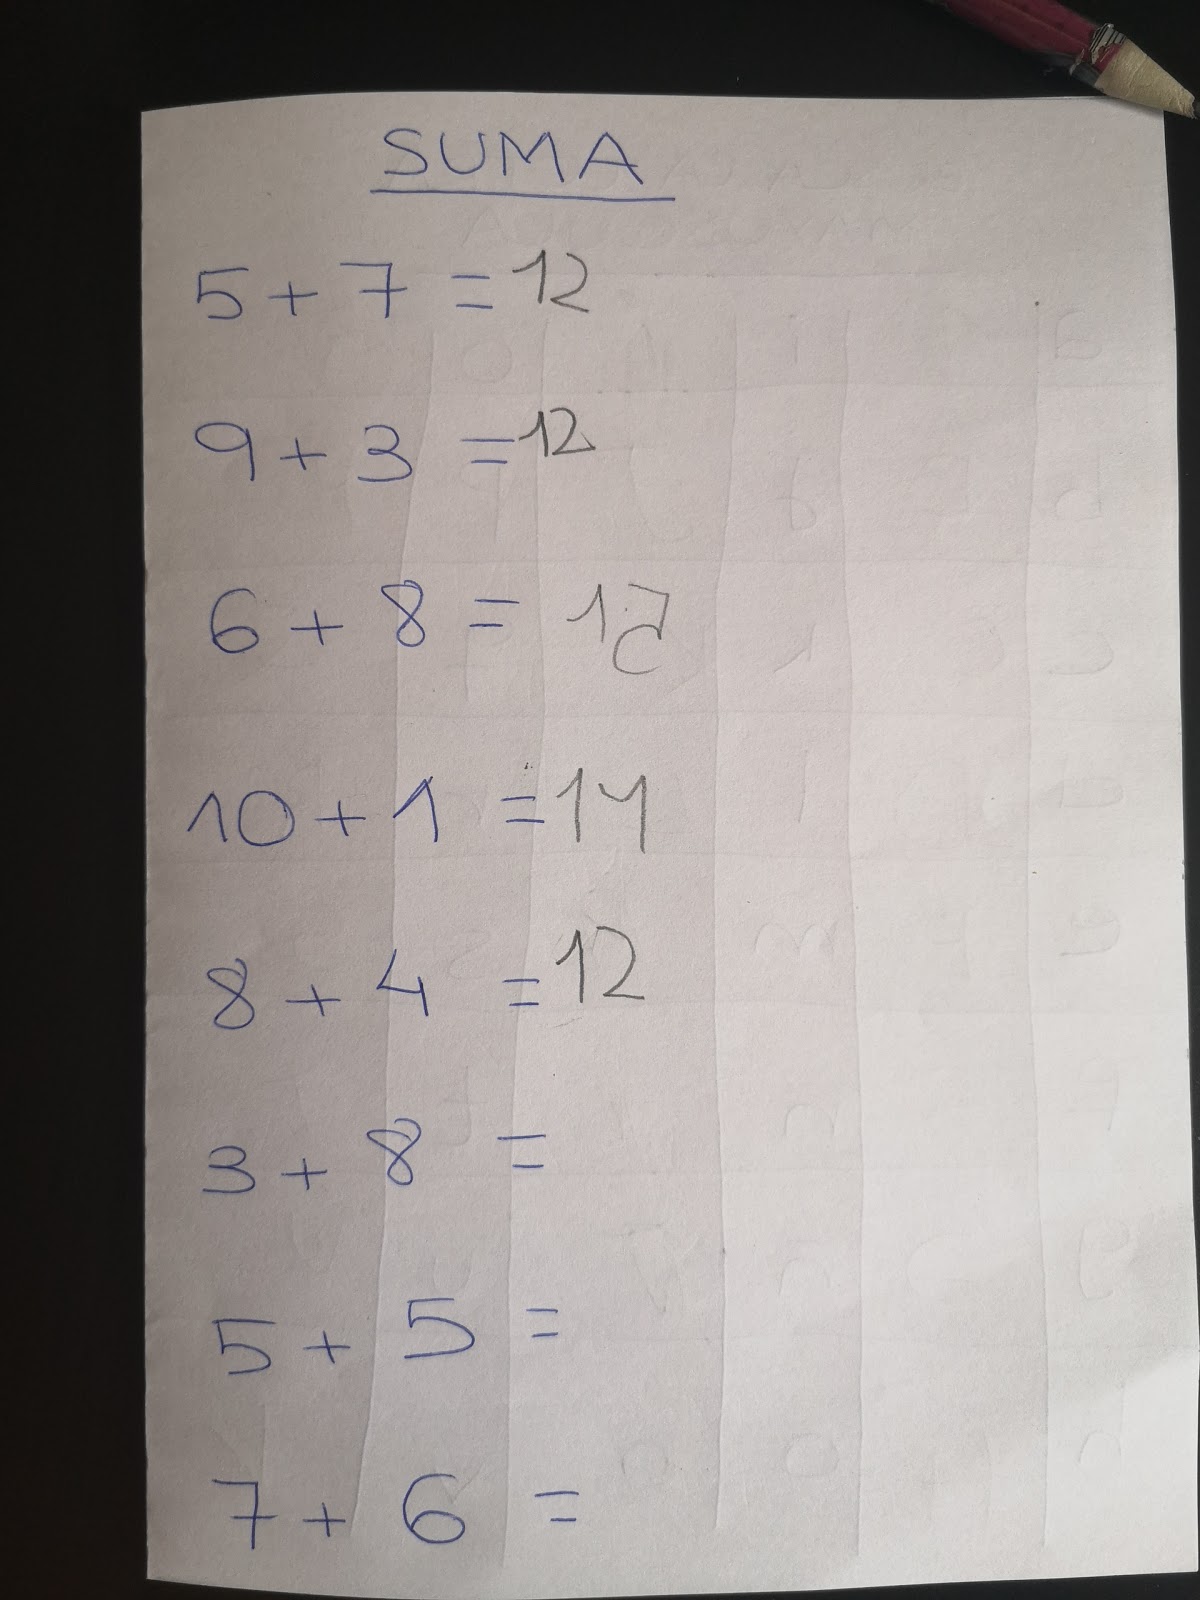 SUMA
5 + 7 = 12
9 + 3 = 12
6 + 8 = 15
10 + 1 = 14
8 + 4 = 12
3 + 8 =
5 + 5 =
7 + 6 =